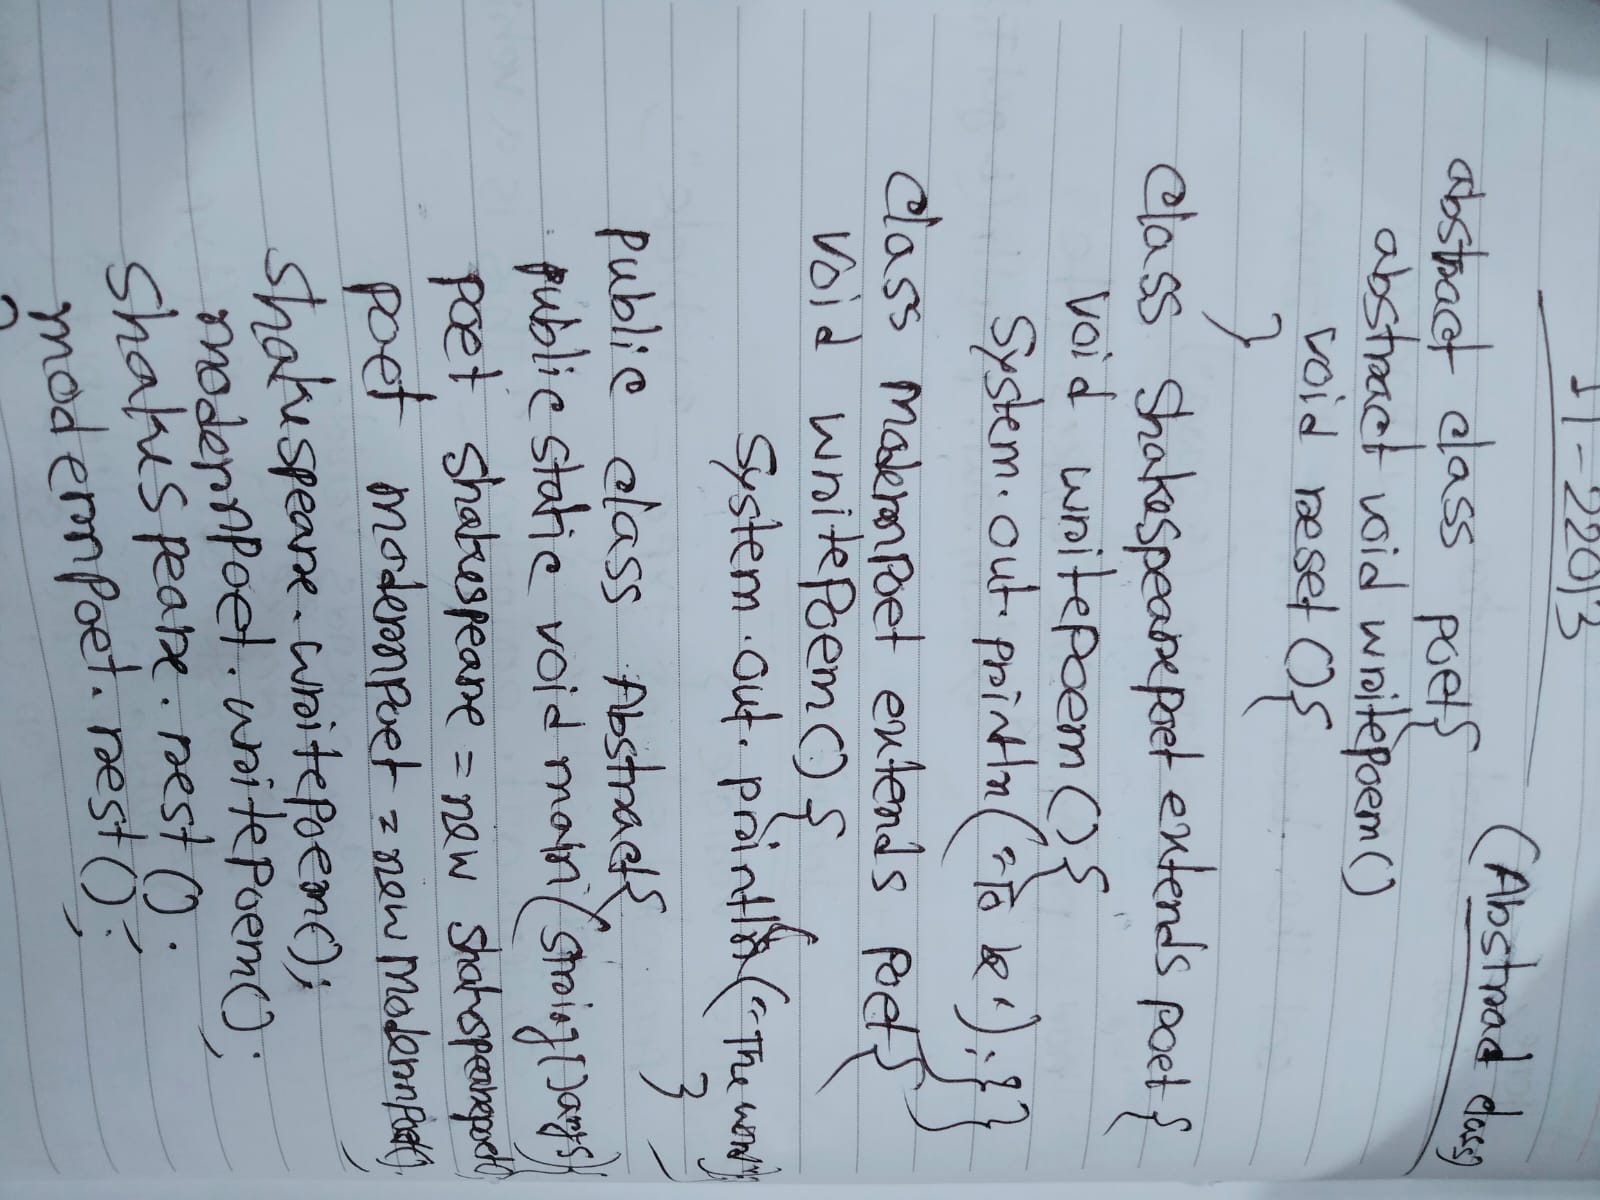 IT-22013
(Abstract class)
abstract class poet{
abstract void writepoem()
void reset(){
}
class Shakespearepoet extends poet{
void writepoem(){
System.out.println("To be");}}
class Modernpoet extends poet{
void writePoem(){
System.out.println("The world");
}
public class Abstract{
public static void main(String[]args){
poet shakespeare = new shakespearepoet()
poet modernpoet = new Modernpoet();
Shakuspeare.writePoem();
modernpoet.writePoem();
Shakuspeare.rest();
modernpoet.rest();